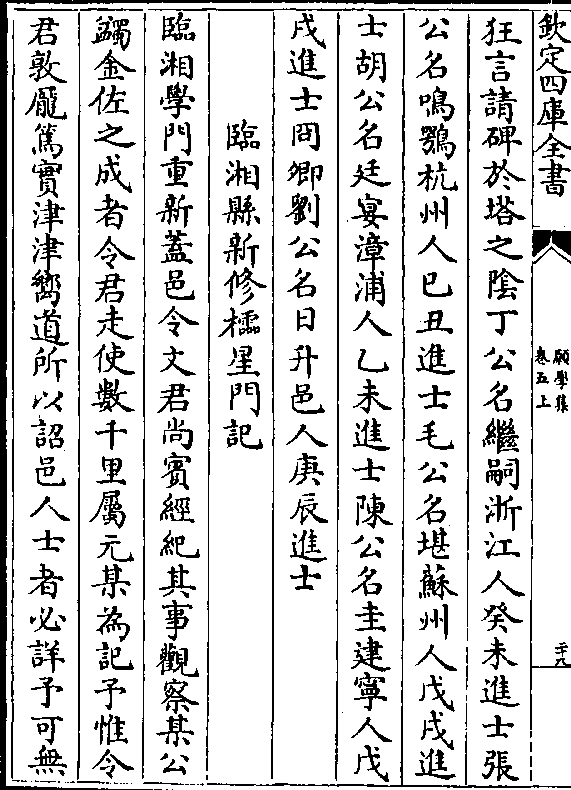 欽定四庫全書
願學集
卷五上
二十八
狂言請碑於塔之陰丁公名繼嗣浙江人癸未進士張
公名鳴鶚杭州人巳丑進士毛公名堪蘇州人戊戌進
士胡公名廷宴漳浦人乙未進士陳公名圭建寧人戊
戌進士冏卿劉公名日升邑人庚辰進士
臨湘縣新修櫺星門記
臨湘學門重新蓋邑令文君尚賓經紀其事觀察某公
蠲金佐之成者令君走使數千里屬元某為記予惟令
君敦龐篤實津津嚮道所以詔邑人士者必詳予可無